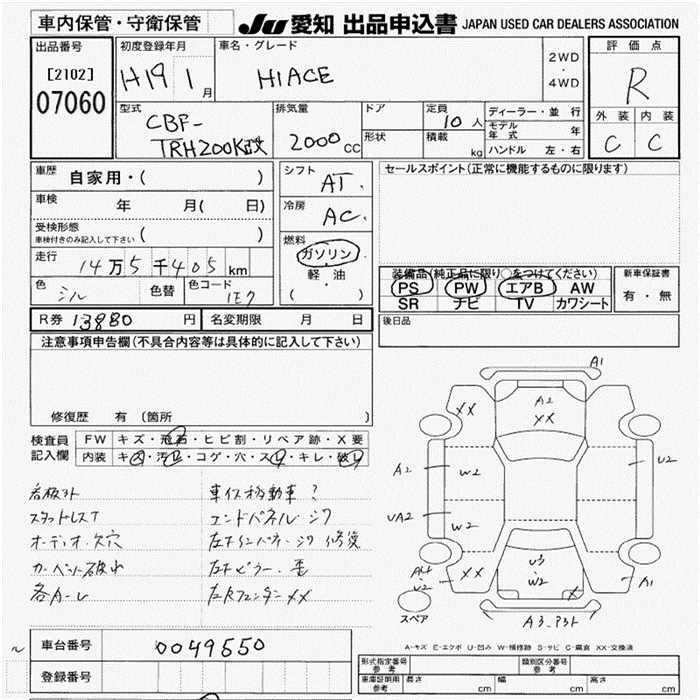 車内保管・守衛保管
JU 愛知 出品申込書 JAPAN USED CAR DEALERS ASSOCIATION
出品番号
[2102]
07060
初度登録年月
H19 1月
車名・グレード
HIACE
2WD
・
4WD
評価点
R
外装 内装
C C
型式
CBF-
TRH200K改
排気量
2000cc
ドア
形状
定員
10人
積載
kg
ディーラー・並行
モデル年式 年
ハンドル 左・右
車歴 自家用・( )
車検 年 月( 日)
受検形態
車検付きのみ記入して下さい ( )
走行 14万5千405km
色 シル 色替 色コード 1E7
シフト
AT.
冷房
AC.
燃料
ガソリン
軽油
( )
セールスポイント(正常に機能するものに限ります)
装備品(純正品に限り○をつけてください)
PS PW エアB AW
SR ナビ TV カワシート
新車保証書
有・無
R券 13880円 名変期限 月 日
後日品
注意事項申告欄(不具合内容等は具体的に記入して下さい)
修復歴 有(箇所
検査員
記入欄
FW キズ・飛石・ヒビ割・リペア跡・X要
内装 キズ・汚レ・コゲ・穴・スレ・キレ・破レ
看板跡
スタッドレスT
オーディオ欠穴
カーペット破れ
各A-U
車イス移動車?
エンドパネルシワ
左リインパネ-シワ 修復
左リピラー 歪
左Rフェンダー XX
A1
XX
A2
XX
A2
W2
U2
UA2
W2
XX
U3
W2
X
A1
スペア
A-キズ E-エクボ U-凹み W-補修跡 S-サビ C-腐食 XX-交換済
車台番号 0049550
登録番号
型式指定番号
参考
類別区分番号
参考
車庫証明用
参考
長さ cm 幅 cm 高さ cm